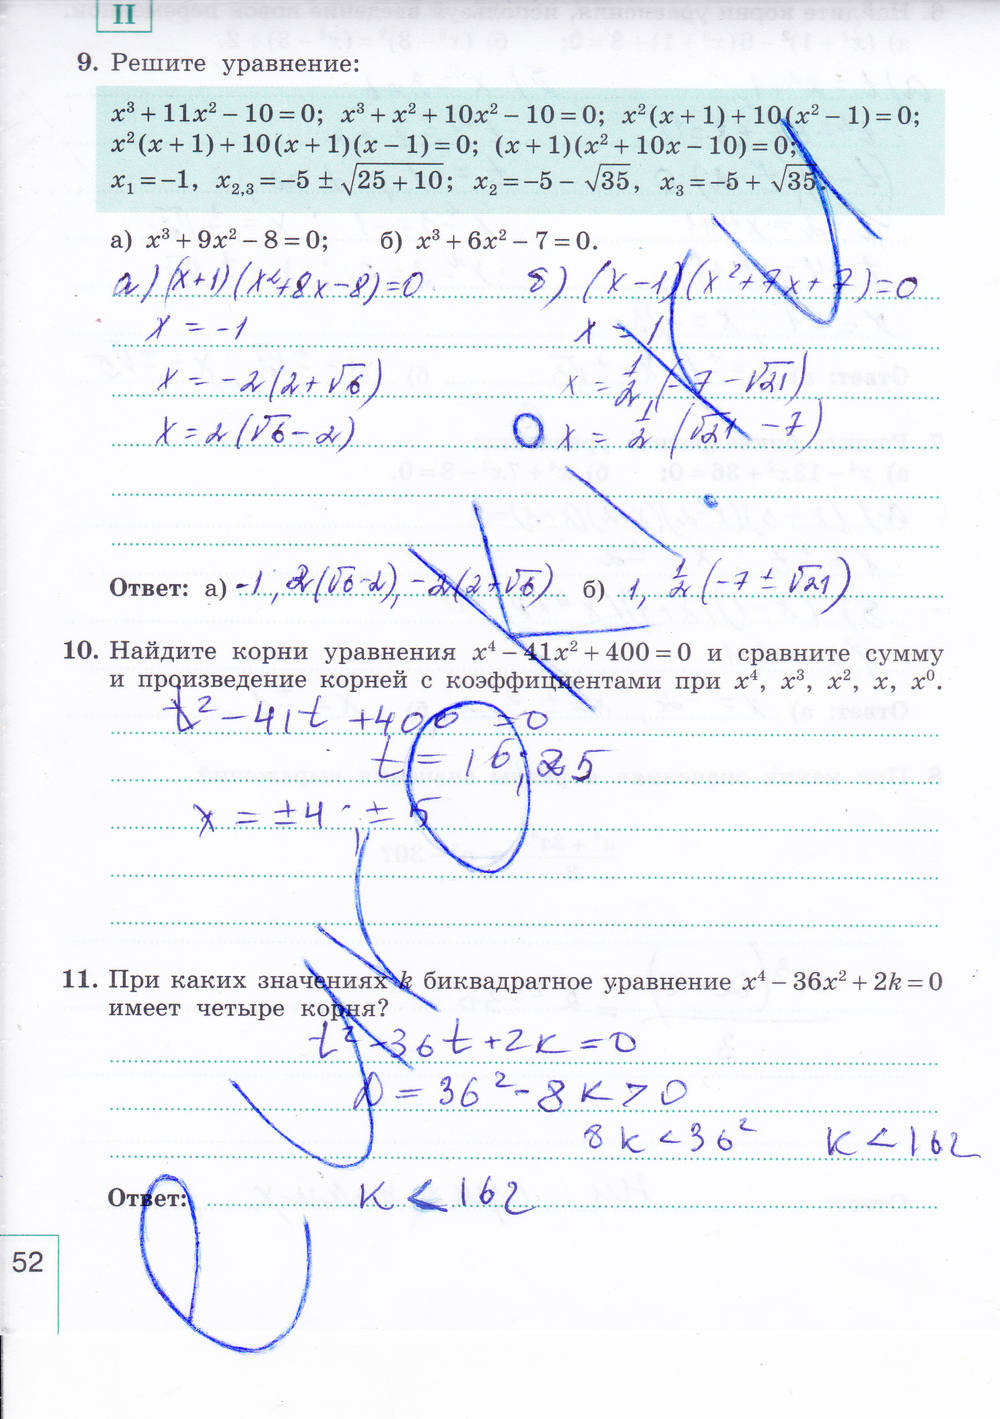 II
9. Решите уравнение:
x³ + 11x² − 10 = 0; x³ + x² + 10x² − 10 = 0; x²(x + 1) + 10(x² − 1) = 0;
x²(x + 1) + 10(x + 1)(x − 1) = 0; (x + 1)(x² + 10x − 10) = 0;
x₁ = −1, x₂,₃ = −5 ± √(25 + 10); x₂ = −5 − √35, x₃ = −5 + √35.
а) x³ + 9x² − 8 = 0; б) x³ + 6x² − 7 = 0.
а) (x+1)(x²+8x−8)=0 б) (x−1)(x²+7x+7)=0
x = −1 x = 1
x = −2(2+√6) x = 1/2 (−7 − √21)
x = 2(√6−2) x = 1/2 (√21 − 7)
Ответ: а) −1, 2(√6−2), −2(2+√6) б) 1, 1/2 (−7 ± √21)
10. Найдите корни уравнения x⁴ − 41x² + 400 = 0 и сравните сумму
и произведение корней с коэффициентами при x⁴, x³, x², x, x⁰.
t² − 41t + 400 = 0
t = 16; 25
x = ±4; ±5
11. При каких значениях k биквадратное уравнение x⁴ − 36x² + 2k = 0
имеет четыре корня?
t² − 36t + 2k = 0
D = 36² − 8k > 0
8k < 36² k < 162
Ответ: k < 162
52